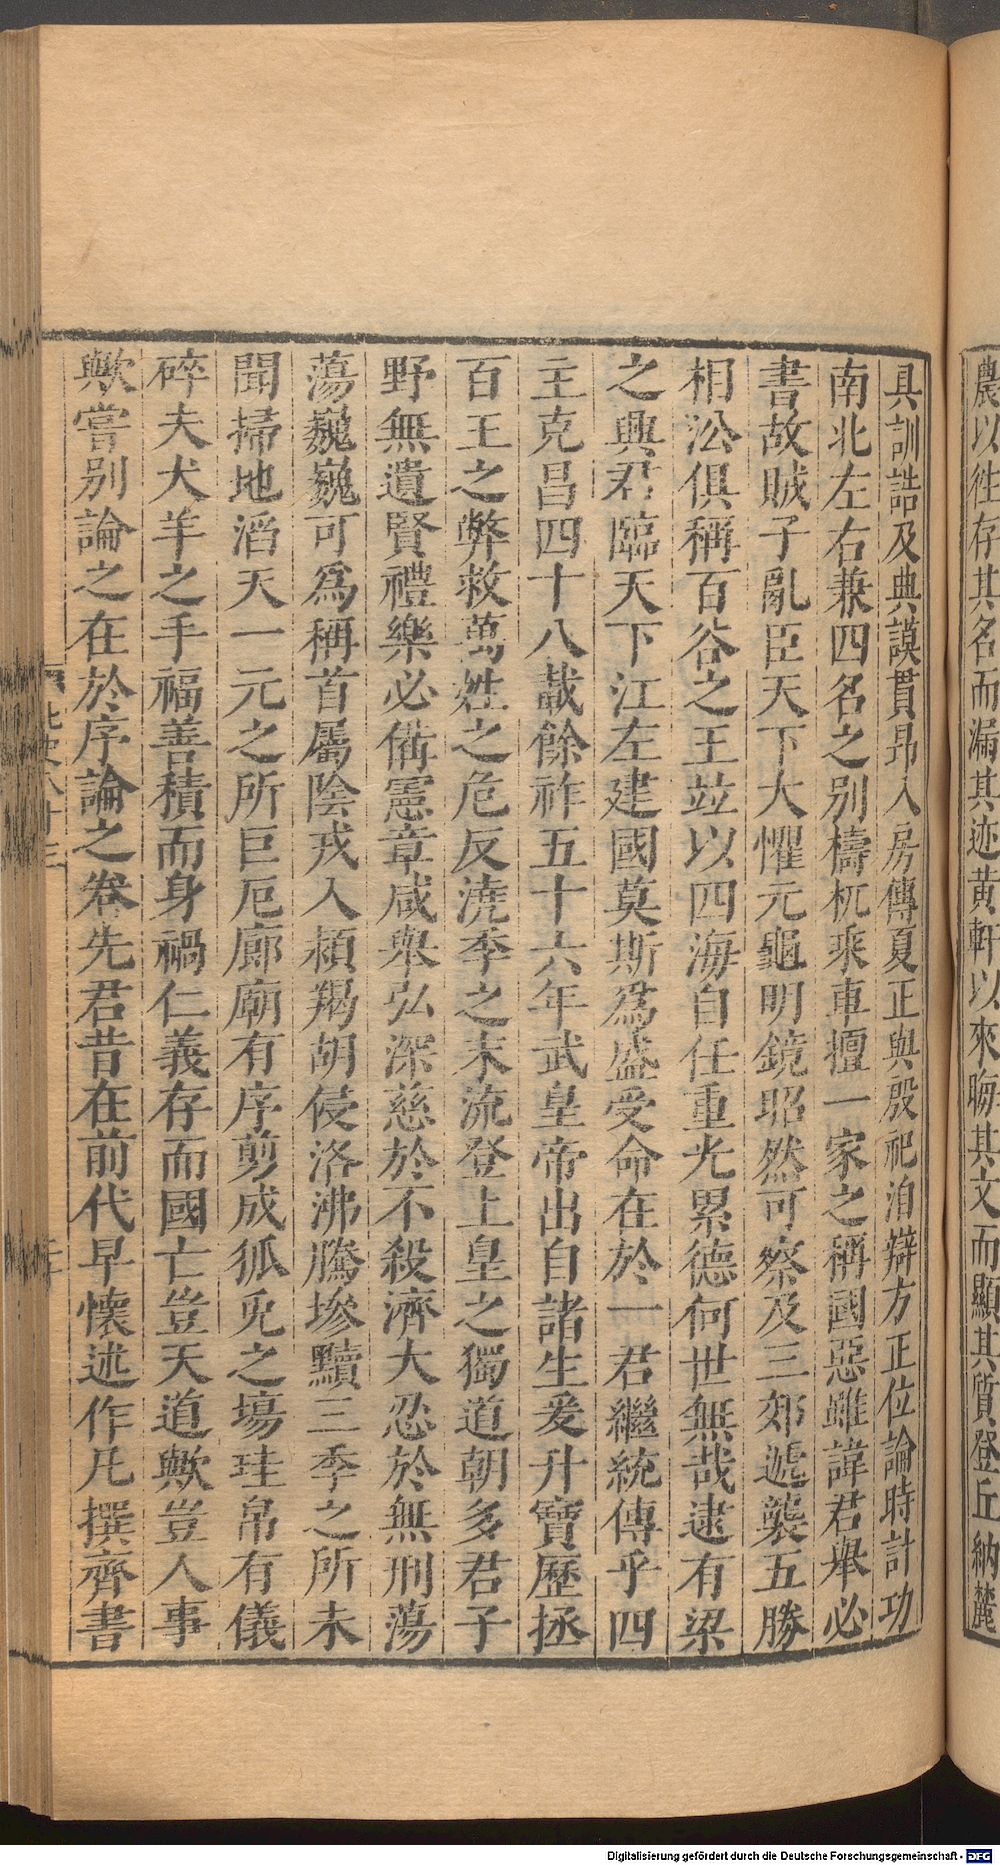 農以徃存其名而漏其迹黄軒以來晦其文而顯其質登丘納麓
具訓誥及典謨貫昴入房傳夏正與殷祀洎辯方正位論時計功
南北左右兼四名之别檮杌乘車擅一家之稱國惡雖諱君舉必
書故賊子亂臣天下大懼元龜明鏡昭然可察及三郊遞襲五勝
相㳂俱稱百谷之王竝以四海自任重光累德何世無哉逮有梁
之興君臨天下江左建國莫斯爲盛受命在於一君繼統傳乎四
主克昌四十八載餘祚五十六年武皇帝出自諸生爰升寶歷拯
百王之弊救萬姓之危反澆季之末流登上皇之獨道朝多君子
野無遺賢禮樂必備憲章咸舉弘深慈於不殺濟大忍於無刑蕩
蕩巍巍可爲稱首屬陰戎入潁羯胡侵洛沸騰墋黷三季之所未
聞掃地滔天一元之所巨厄廊廟有序剪成狐兎之場珪帛有儀
碎夫犬羊之手福善積而身禍仁義存而國亡豈天道歟豈人事
歟嘗别論之在於序論之卷先君昔在前代早懷述作凡撰齊書
北史八十三
Digitalisierung gefördert durch die Deutsche Forschungsgemeinschaft - DFG